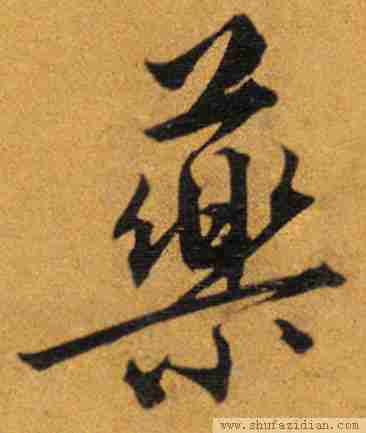 藥
www.shufazidian.com